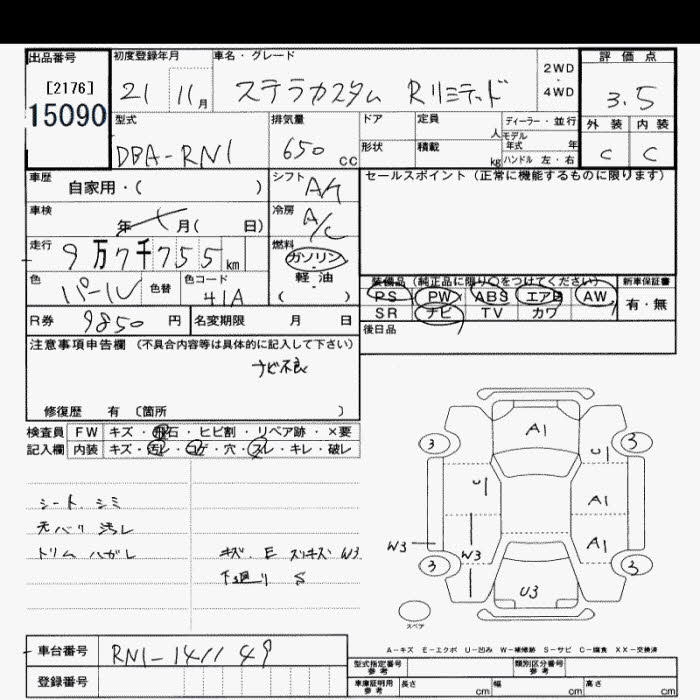 出品番号 初度登録年月 車名・グレード 2WD・4WD 評価点
[2176]
15090 21 11月 ステラカスタム Rリミテッド 3.5
型式 排気量 ドア 定員 人 ディーラー・並行 外装 内装
DBA-RN1 650cc 形状 積載 kg モデル年式 年 ハンドル 左・右 C C
車歴 自家用・( ) シフト セールスポイント(正常に機能するものに限ります)
車検 年 月( 日) 冷房 A/C
走行 9万7千755km 燃料 ガソリン・軽油( )
色 パール 色替 色コード 41A
装備品(純正品に限り○をつけてください) 新車保証書
PS PW ABS エアB AW 有・無
SR ナビ TV カワ
R券 9850円 名変期限 月 日 後日品
注意事項申告欄(不具合内容等は具体的に記入して下さい)
ナビ不良
修復歴 有 〔箇所 〕
検査員 FW キズ・飛石・ヒビ割・リペア跡・×要
記入欄 内装 キズ・汚レ・コゲ・穴・スレ・キレ・破レ
シート シミ
天バリ 汚レ
トリム ハガレ キズ. E スリキズ W3
下廻り S
A1
3 U1 3
U1 A1
W3 W3 A1
3 U3 3
スペア
A-キズ E-エクボ U-凹み W-補修跡 S-サビ C-腐食 XX-交換済
車台番号 RN1-141149
登録番号
型式指定番号 参考 類別区分番号 参考
車庫証明用 参考 長さ cm 幅 cm 高さ cm